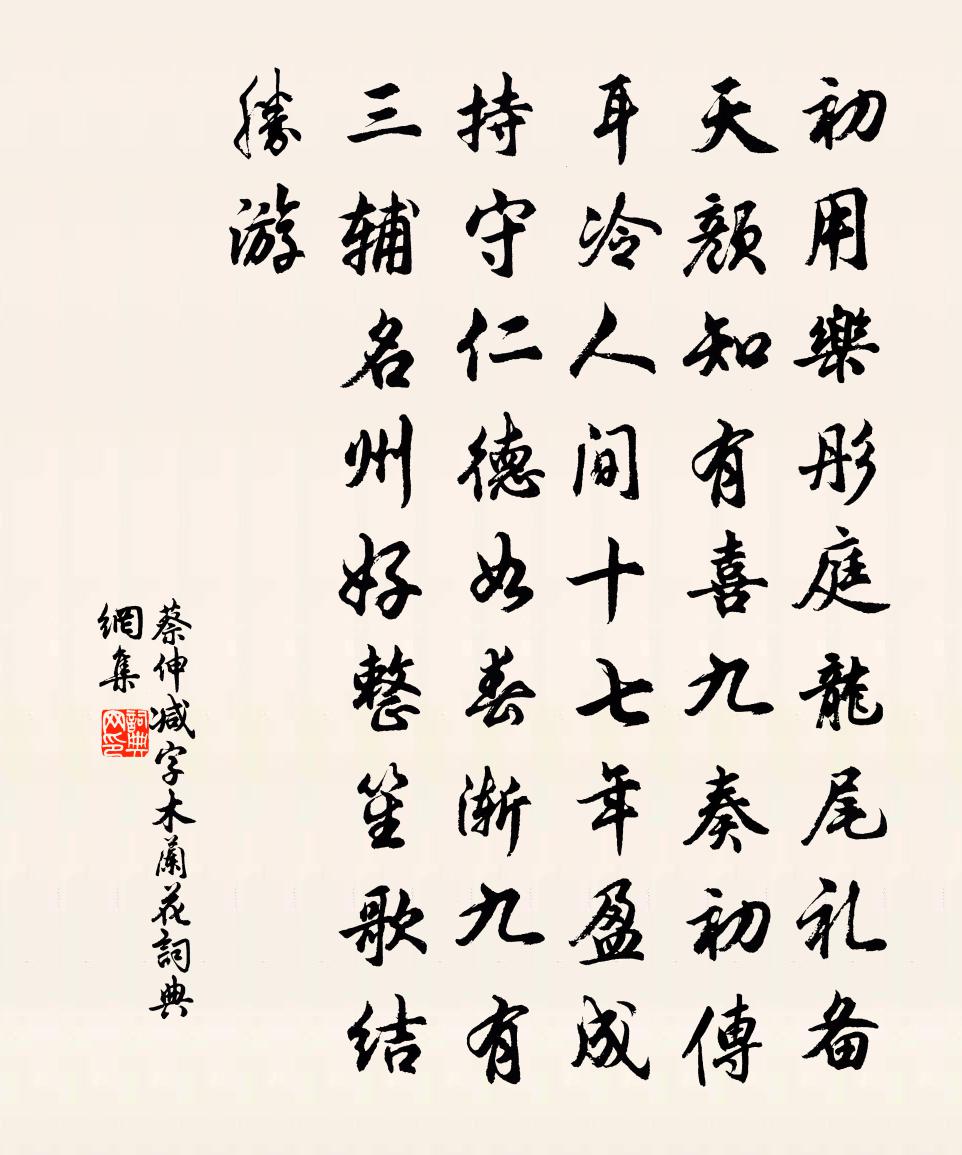 初用樂彤庭龍尾礼备
天顏知有喜九奏初傳
耳冷人间十七年盈成
持守仁德如春渐九有
三辅名州好整笙歌结
勝游
蔡伸减字木蘭花詞典
網集
詞典
网印